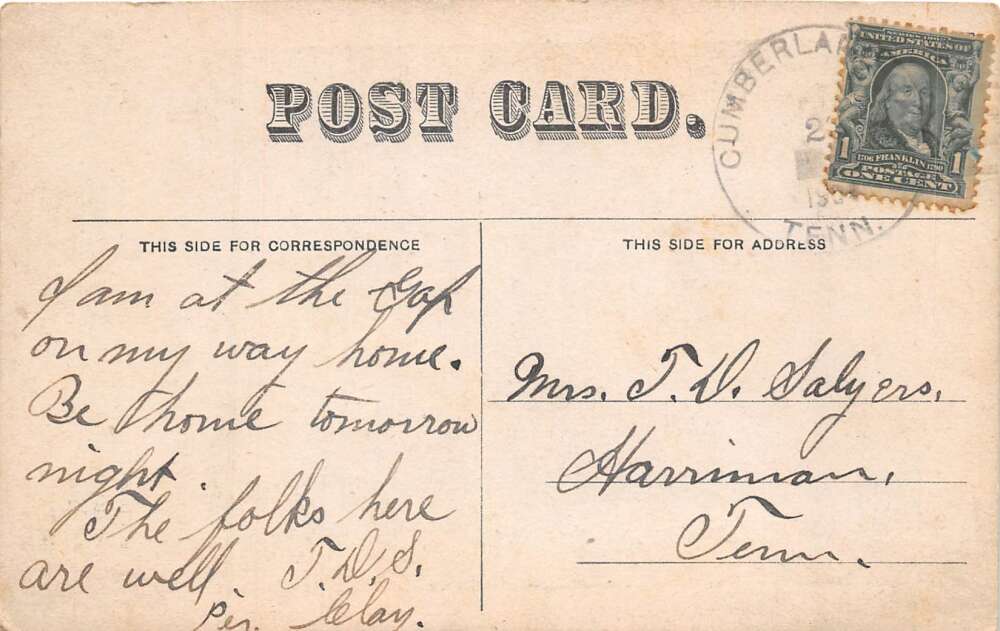 POST CARD.
CUMBERLA
2
19
TENN.
SERIES 1902
UNITED STATES OF
AMERICA
1 1706 FRANKLIN 1790 1
POSTAGE
ONE CENT
THIS SIDE FOR CORRESPONDENCE
I am at the Gap
on my way home.
Be home tomorrow
night.
The folks here
are well. T.D.S.
Per. Clay.
THIS SIDE FOR ADDRESS
Mrs. T. D. Salyers,
Harriman,
Tenn.